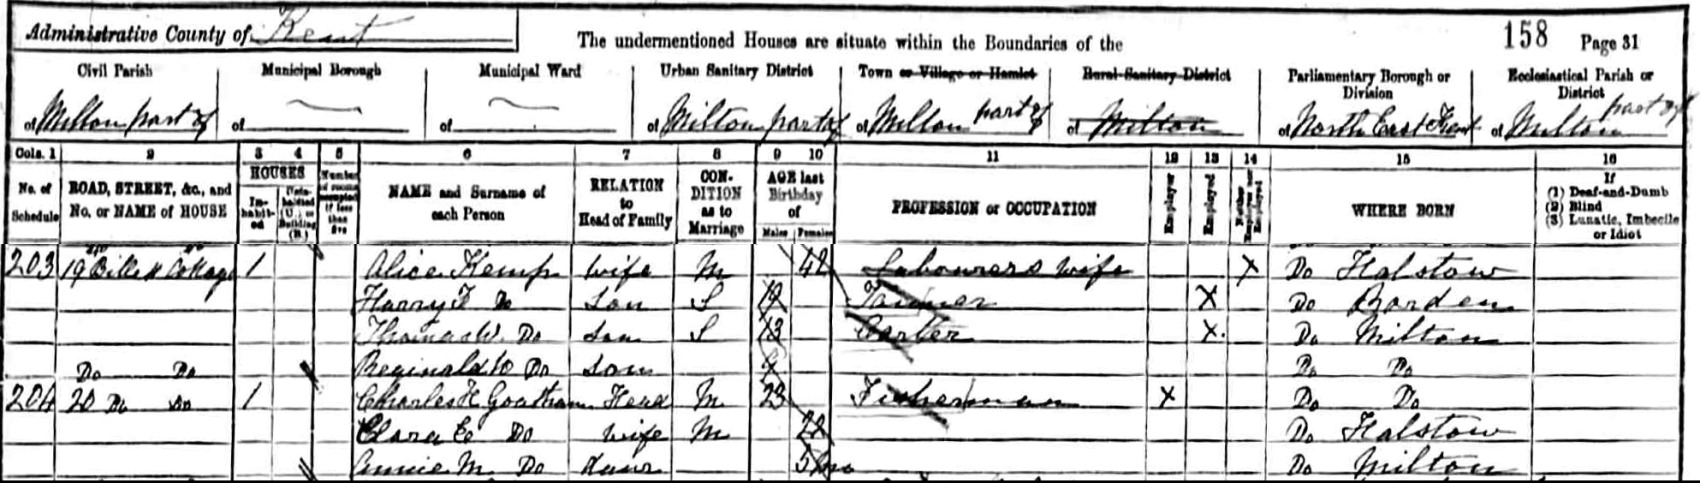 Administrative County of Kent
The undermentioned Houses are situate within the Boundaries of the
158 Page 31
Civil Parish Municipal Borough Municipal Ward Urban Sanitary District Town or Village or Hamlet Rural Sanitary District Parliamentary Borough or Division Ecclesiastical Parish or District
of Milton part of of of of Milton part of of Milton part of of Milton of North East Kent of Milton part of
Cols. 1 2 3 4 5 6 7 8 9 10 11 12 13 14 15 16
No. of Schedule ROAD, STREET, &c., and No. or NAME of HOUSE HOUSES Inhabited Uninhabited (U.) or Building (B.) Number of rooms occupied if less than five NAME and Surname of each Person RELATION to Head of Family CONDITION as to Marriage AGE last Birthday of Males Females PROFESSION or OCCUPATION Employer Employed Neither Employer nor Employed WHERE BORN If (1) Deaf-and-Dumb (2) Blind (3) Lunatic, Imbecile or Idiot
203 19 Cottage 1 Alice Kemp wife M 42 Labourers wife X Do Halstow
Harry F Do Son S 19 X Do Borden
Thomas W. Do Son S 13 X Do Milton
Do Do Reginald W Do Son Do Do
204 20 Do Do 1 Charles H Goatham Head M 23 Fisherman X Do Do
Clara E Do wife M 22 Do Halstow
Annie M. Do Daur 5 Mo Do Milton